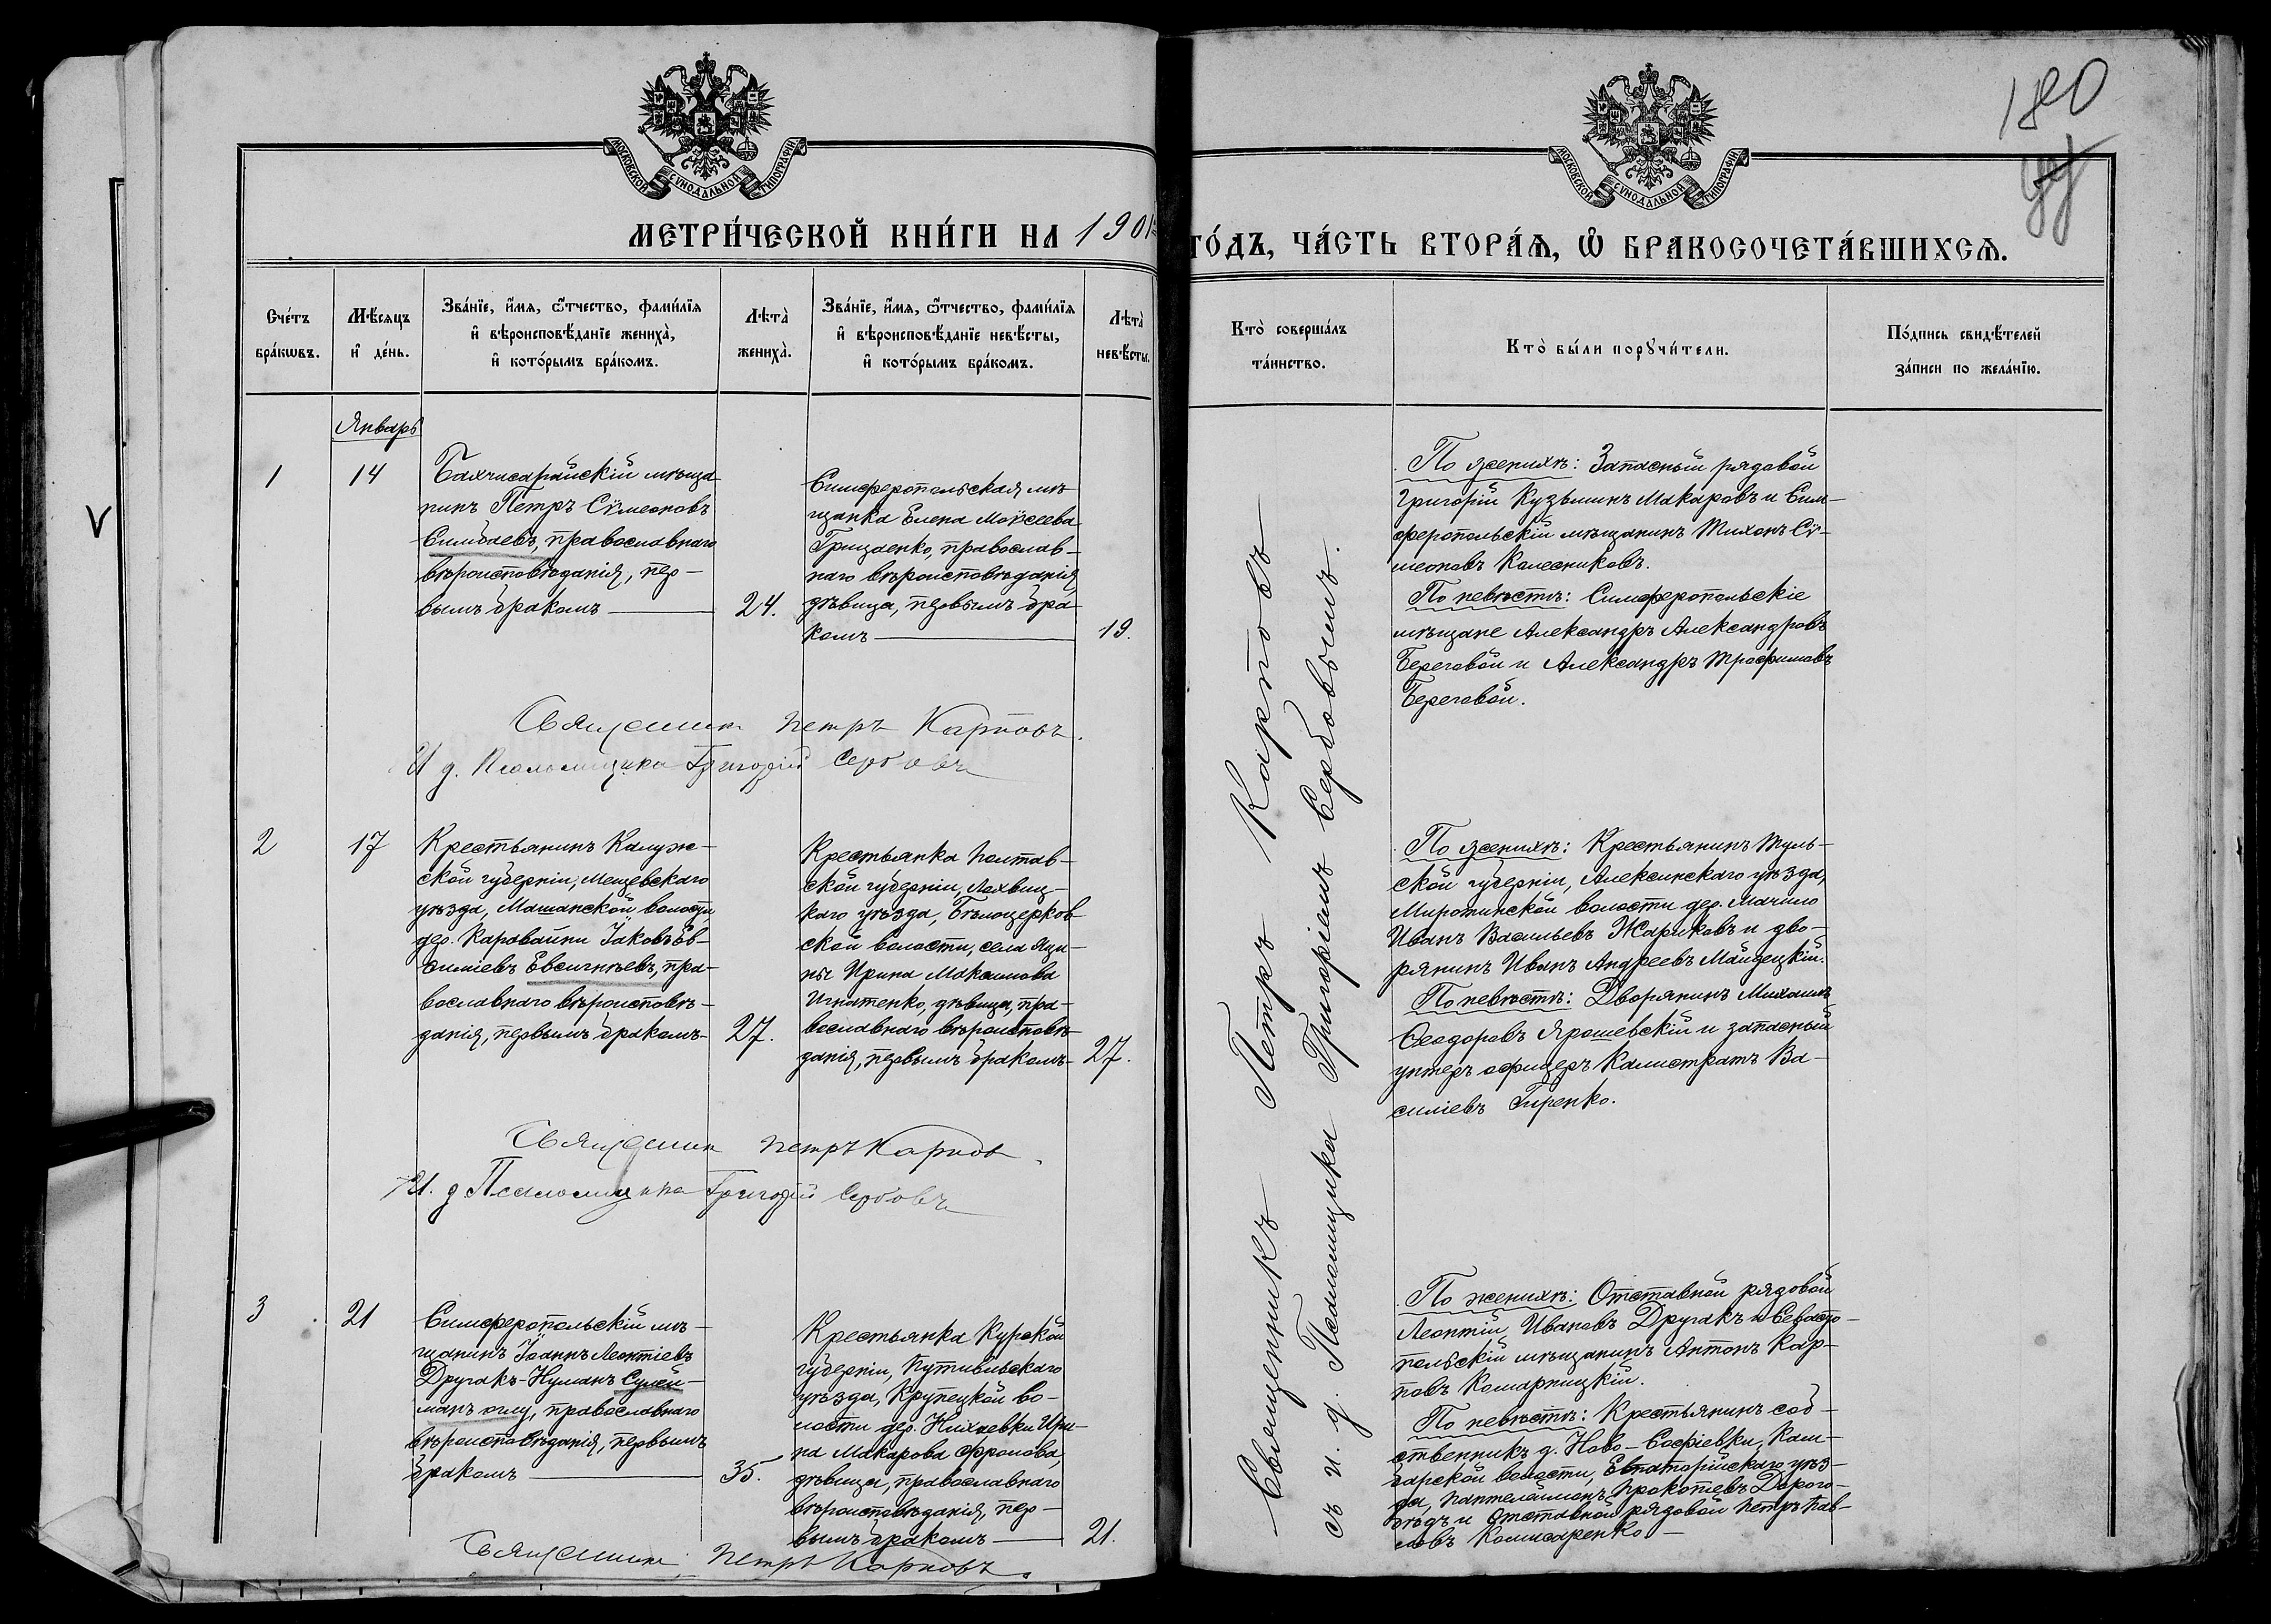 180
МОСКОВСКОЙ СѴНОДАЛЬНОЙ ТИПОГРАФІИ
МОСКОВСКОЙ СѴНОДАЛЬНОЙ ТИПОГРАФІИ
МЕТРИ́ЧЕСКОЙ КНИ́ГИ НА 1901
ГО́ДЪ, ЧА́СТЬ ВТОРА́Ѧ, Ѡ БРАКОСОЧЕТА́ВШИХСѦ.
Сче́тъ бра́кѡвъ.
Мѣ́сяцъ и де́нь.
Зва́нїе, и́мя, ѻ́тчество, фами́лїя
и вѣроисповѣ́данїе жениха̀,
и кото́рымъ бра́комъ.
Лѣта̀ жениха̀.
Зва́нїе, и́мя, ѻ́тчество, фами́лїя
и вѣроисповѣ́данїе невѣ́сты,
и кото́рымъ бра́комъ.
Лѣта̀ невѣ́сты.
Кто̀ соверша́лъ
та́инство.
Кто̀ бы́ли порꙋчи́тели.
По́дпись свидѣ́телей
за́писи по жела́нїю.
Январь
1
14
Бахчисарайскій мѣща
нинъ Петръ Сѵмеоновъ
Симбаевъ, православнаго
вѣроисповѣданія, пер-
вымъ бракомъ
24.
Симферопольская мѣ
щанка Елена Моѵсеева
Грицаенко, православ-
наго вѣроисповѣданія
дѣвица, первымъ бра
комъ
19.
По женихѣ: Запасный рядовой
Григорій Кузьминъ Макаровъ и Сим-
феропольскій мѣщанинъ Тихонъ Сѵ-
меоновъ Колесниковъ.
По невѣстѣ: Симферопольскіе
мѣщане Александръ Александровъ
Береговой и Александръ Трофимовъ
Береговой.
Священникъ Петръ Карповъ.
И д. Псаломщика Григорій Сербовъ
2
17
Крестьянинъ Калуж-
ской губерніи, Мещевскаго
уѣзда, Мошонской волости,
дер. Каравайки Іаковъ Ев-
ѳиміевъ Евсигнѣевъ, пра-
вославнаго вѣроисповѣ-
данія, первымъ бракомъ-
27.
Крестьянка Полтав-
ской губерніи, Лохвиц-
каго уѣзда, Бѣлоцерков-
ской волости, села Яци-
ны Ирина Максимова
Игнатенко, дѣвица, пра-
вославнаго вѣроисповѣ-
данія, первымъ бракомъ-
27.
По женихѣ: Крестьянинъ Туль-
ской губерніи, Алексинскаго уѣзда,
Миротинской волости дер.
Иванъ Васильевъ Жариковъ и дво-
рянинъ Иванъ Андреевъ Майдецкій.
По невѣстѣ: Дворянинъ Михаилъ
Ѳеодоровъ Ярошевскій и запасный
унтеръ офицеръ Калистратъ Ва-
силіевъ Гиренко.
Священник Петръ Карпов
И. д Псаломщика Григорій Сербовъ
3
21
Симферопольскій мѣ-
щанинъ Іоаннъ Леонтіевъ
Другакъ-Нуманъ Сулей-
манъ оглу, православнаго
вѣроисповѣданія, первымъ
бракомъ
35.
Крестьянка Курской
губерніи, Путивльскаго
уѣзда, Крупецкой во-
лости дер. Нихаевки Ири-
на Макарова Фролова,
дѣвица, православнаго
вѣроисповѣданія, пер-
вымъ бракомъ
21.
По женихѣ: Отставной рядовой
Леонтій Ивановъ Другакъ и Севасто-
польскій мѣщанинъ Антонъ Кар-
повъ Комарницкій.
По невѣстѣ: Крестьянинъ соб-
ственникъ д. Ново-Софіевки,
волости, Евпаторійскаго уѣз-
да, Пантелаимонъ Прокопіевъ Дорого-
и отставной рядовой Петръ Пав-
ловъ Комисаренко
Священник Петръ Карповъ.
Священникъ Петръ Карповъ
съ и. д. Псаломщика Григоріемъ Сербовымъ.